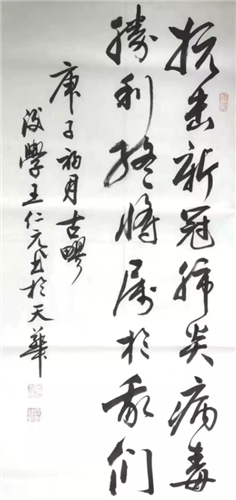 抗击新冠肺炎病毒
勝利終將属於我们
庚子初月古郢
後學王仁元书於天華